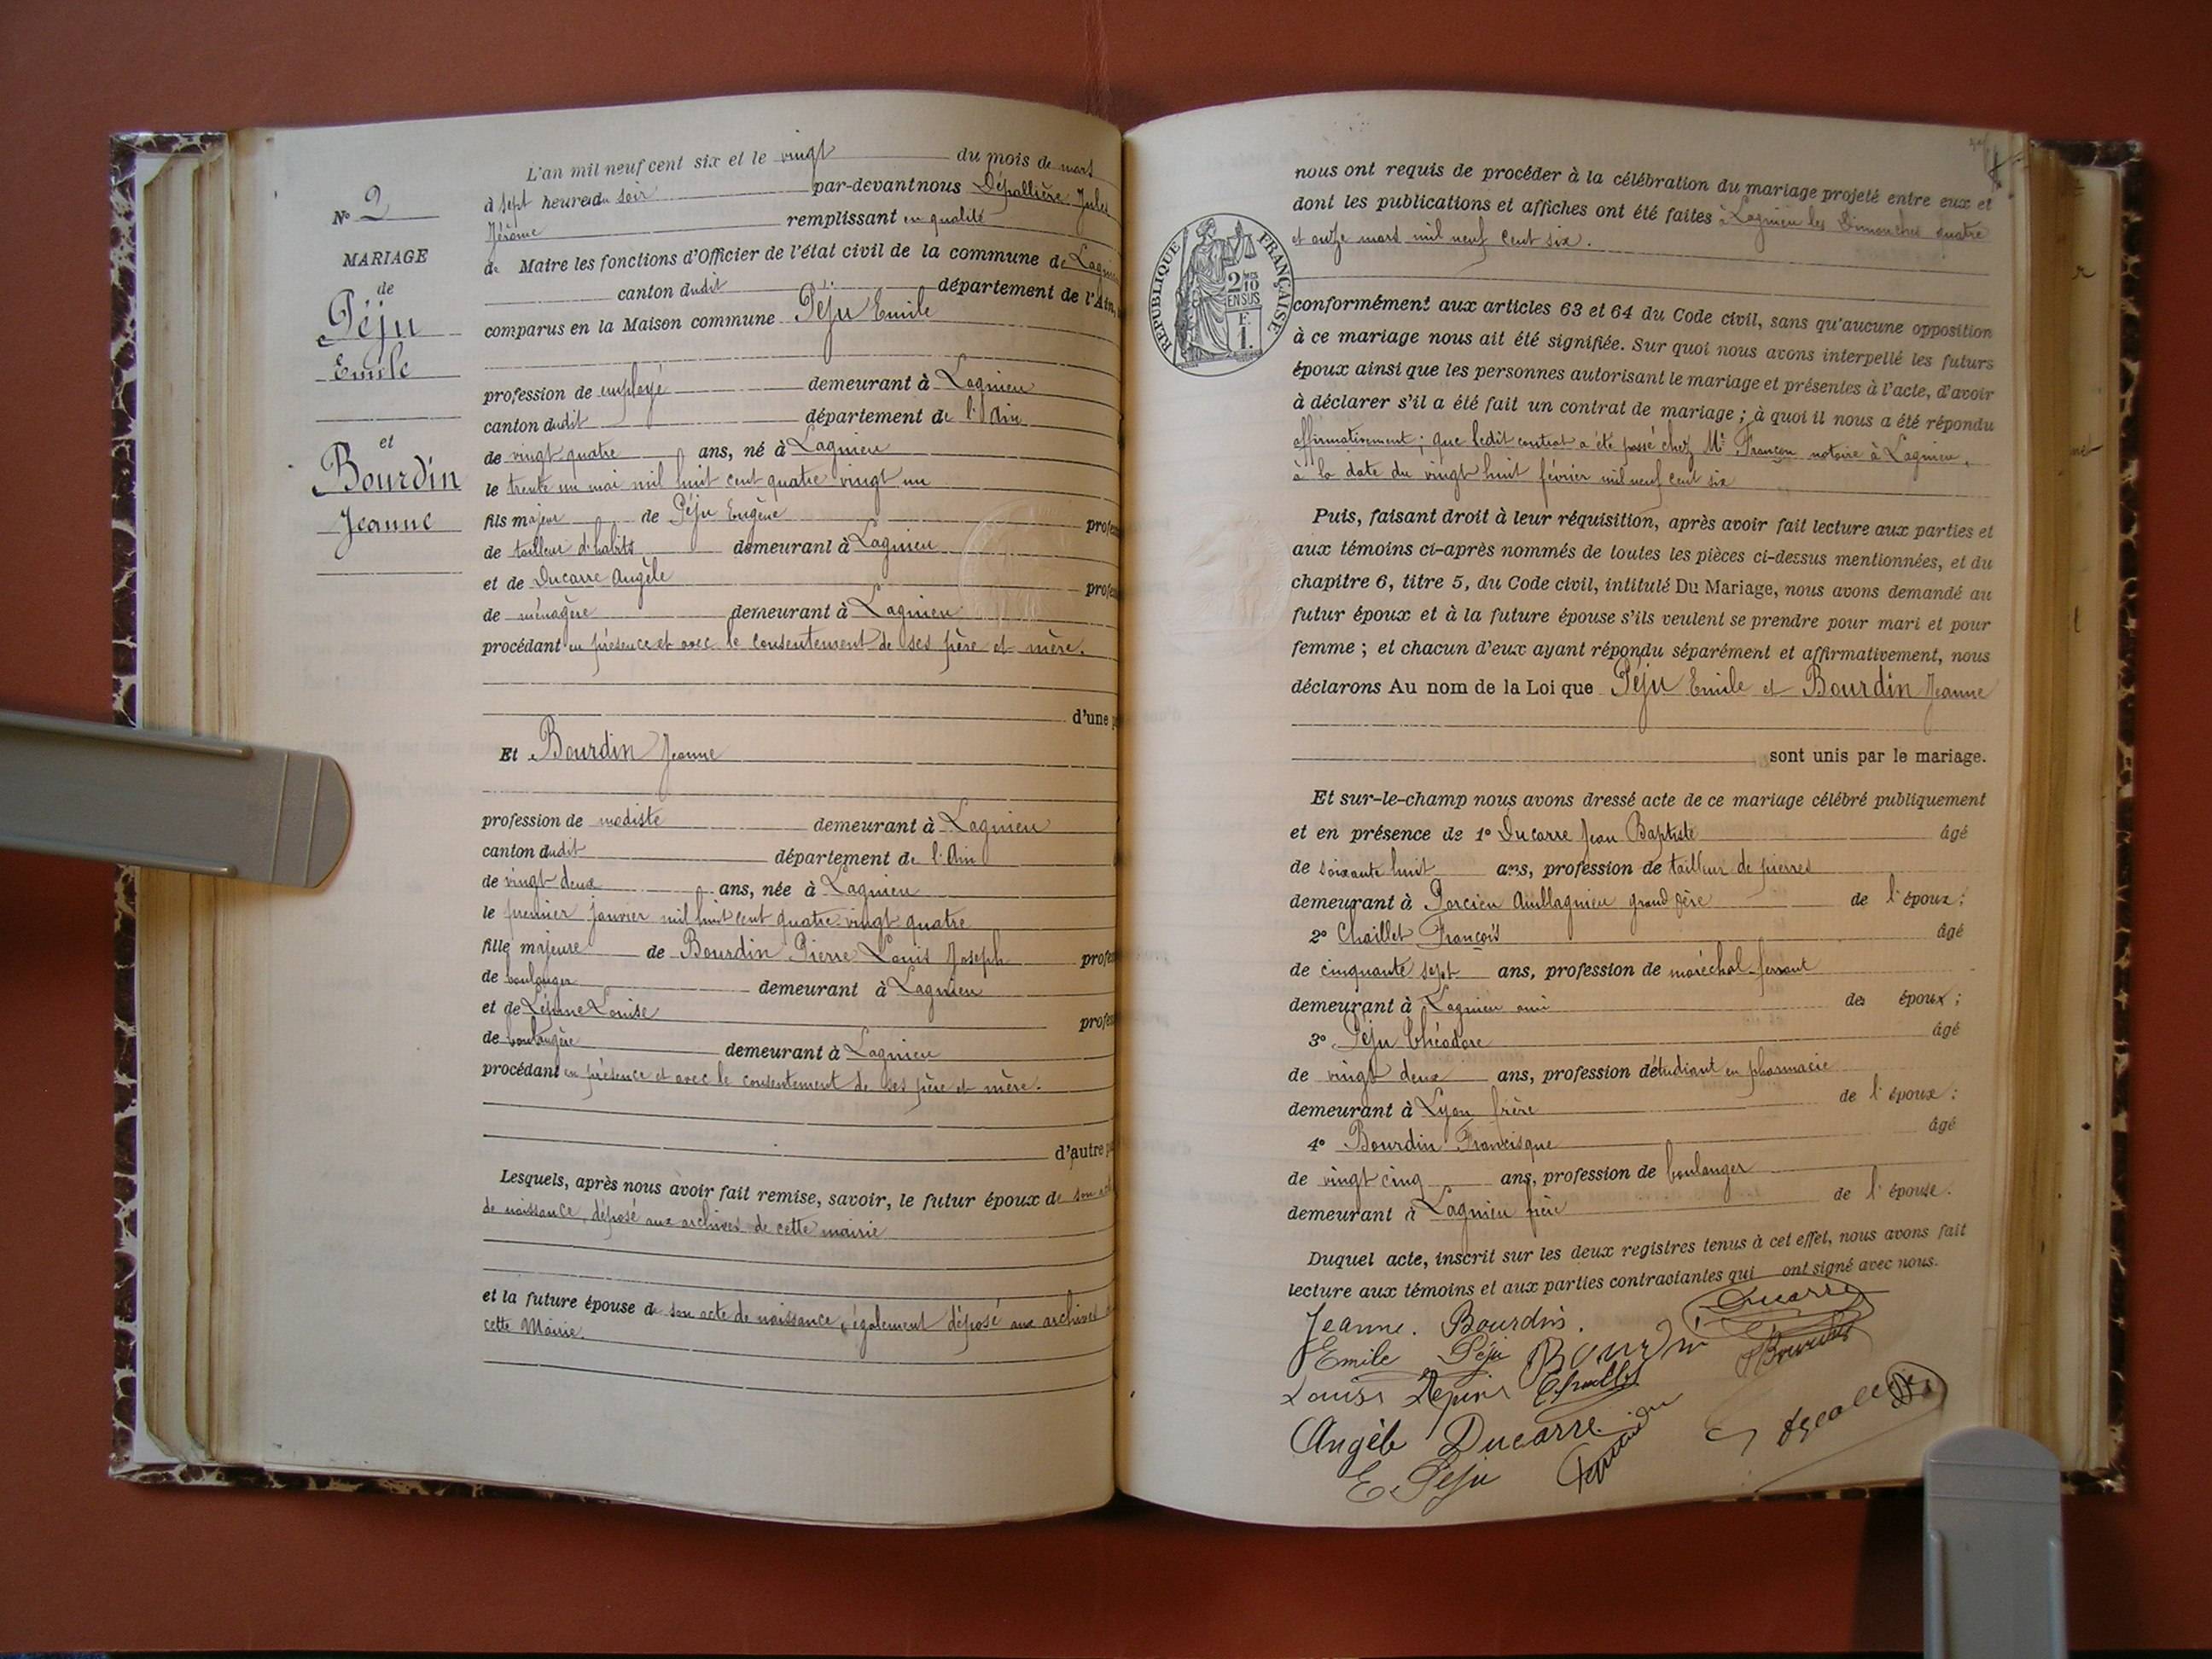 L'an mil neuf cent six et le vingt du mois de mars
à sept heures du soir par-devant nous Dépallière Jules
Jérôme remplissant en qualité
de Maire les fonctions d'Officier de l'état civil de la commune de
canton dudit département de l'Ain,
comparus en la Maison commune Péju Emile
N° 2
MARIAGE
de
Péju
Emile
et
Bourdin
Jeanne
profession de employé demeurant à Lagnieu
canton dudit département de l'Ain
de vingt quatre ans, né à Lagnieu
le trente un mai mil huit cent quatre vingt un
fils majeur de Péju Eugène
de tailleur d'habits demeurant à Lagnieu
et de Ducarre Angèle
de ménagère demeurant à Lagnieu
procédant en présence et avec le consentement de ses père et mère.
d'une
Et Bourdin Jeanne
profession de modiste demeurant à Lagnieu
canton dudit département de l'Ain
de vingt deux ans, née à Lagnieu
le premier janvier mil huit cent quatre vingt quatre
fille majeure de Bourdin Pierre Louis Joseph
de boulanger demeurant à Lagnieu
et de Lépine Louise
de boulangère demeurant à Lagnieu
procédant en présence et avec le consentement de ses père et mère.
d'autre
Lesquels, après nous avoir fait remise, savoir, le futur époux de son
de naissance, déposé aux archives de cette mairie
et la future épouse de son acte de naissance, également déposé aux archives
cette Mairie.
nous ont requis de procéder à la célébration du mariage projeté entre eux et
dont les publications et affiches ont été faites à Lagnieu les Dimanches quatre
et onze mars mil neuf cent six.
RÉPUBLIQUE FRANÇAISE
2/10 EN SUS
F.
1.
conformément aux articles 63 et 64 du Code civil, sans qu'aucune opposition
à ce mariage nous ait été signifiée. Sur quoi nous avons interpellé les futurs
époux ainsi que les personnes autorisant le mariage et présentes à l'acte, d'avoir
à déclarer s'il a été fait un contrat de mariage ; à quoi il nous a été répondu
affirmativement ; que ledit contrat a été passé chez Me Françon notaire à Lagnieu,
à la date du vingt huit février mil neuf cent six
Puis, faisant droit à leur réquisition, après avoir fait lecture aux parties et
aux témoins ci-après nommés de toutes les pièces ci-dessus mentionnées, et du
chapitre 6, titre 5, du Code civil, intitulé Du Mariage, nous avons demandé au
futur époux et à la future épouse s'ils veulent se prendre pour mari et pour
femme ; et chacun d'eux ayant répondu séparément et affirmativement, nous
déclarons Au nom de la Loi que Péju Emile et Bourdin Jeanne
sont unis par le mariage.
Et sur-le-champ nous avons dressé acte de ce mariage célébré publiquement
et en présence de 1° Ducarre Jean Baptiste âgé
de soixante huit ans, profession de tailleur de pierres
demeurant à Porcieu Amblagnieu grand père de l'époux ;
2° Chaillet François âgé
de cinquante sept ans, profession de maréchal-ferrant
demeurant à Lagnieu ami des époux ;
3° Péju Théodore âgé
de vingt deux ans, profession d'étudiant en pharmacie
demeurant à Lyon frère de l'époux ;
4° Bourdin Francisque âgé
de vingt cinq ans, profession de boulanger
demeurant à Lagnieu frère de l'épouse.
Duquel acte, inscrit sur les deux registres tenus à cet effet, nous avons fait
lecture aux témoins et aux parties contractantes qui ont signé avec nous.
Jeanne. Bourdin. Ducarre
Emile Péju Bourdin
Louise Lépine
Angèle Ducarre
E. Péju